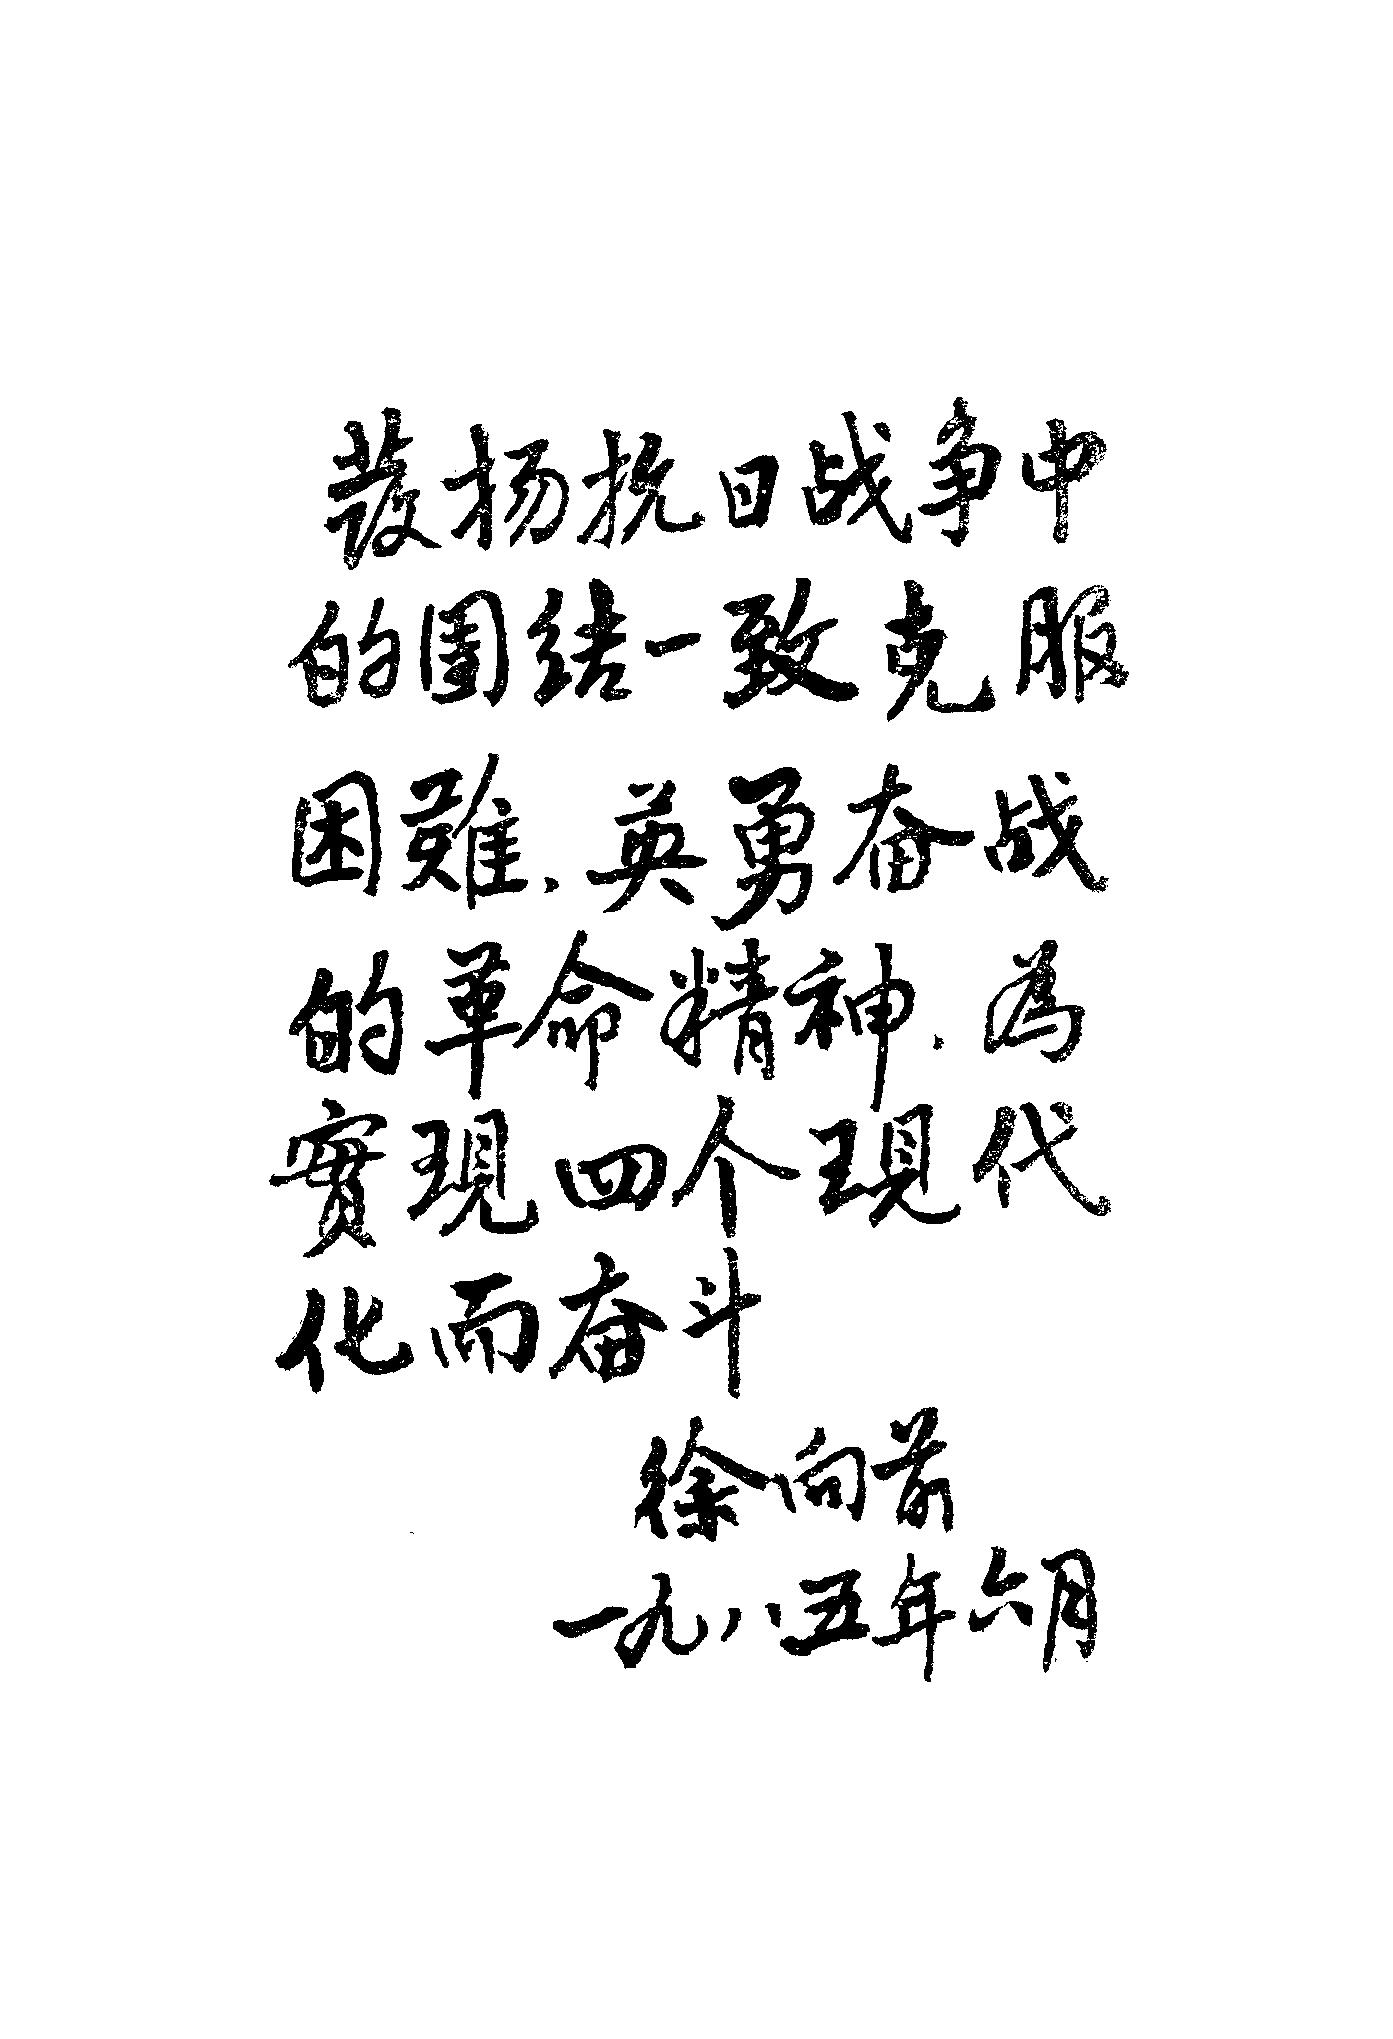 發扬抗日战争中
的團结一致克服
困難、英勇奋战
的革命精神、為
實現四个現代
化而奋斗
徐向前
一九八五年六月